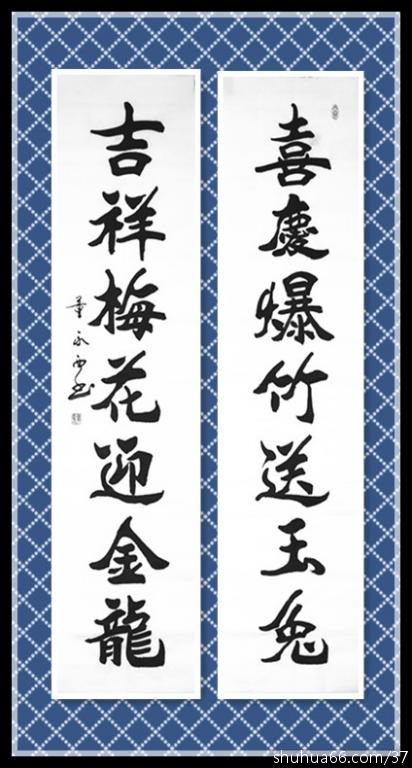 喜慶爆竹送玉兔
吉祥梅花迎金龍
董永西书
shuhua66.com/37